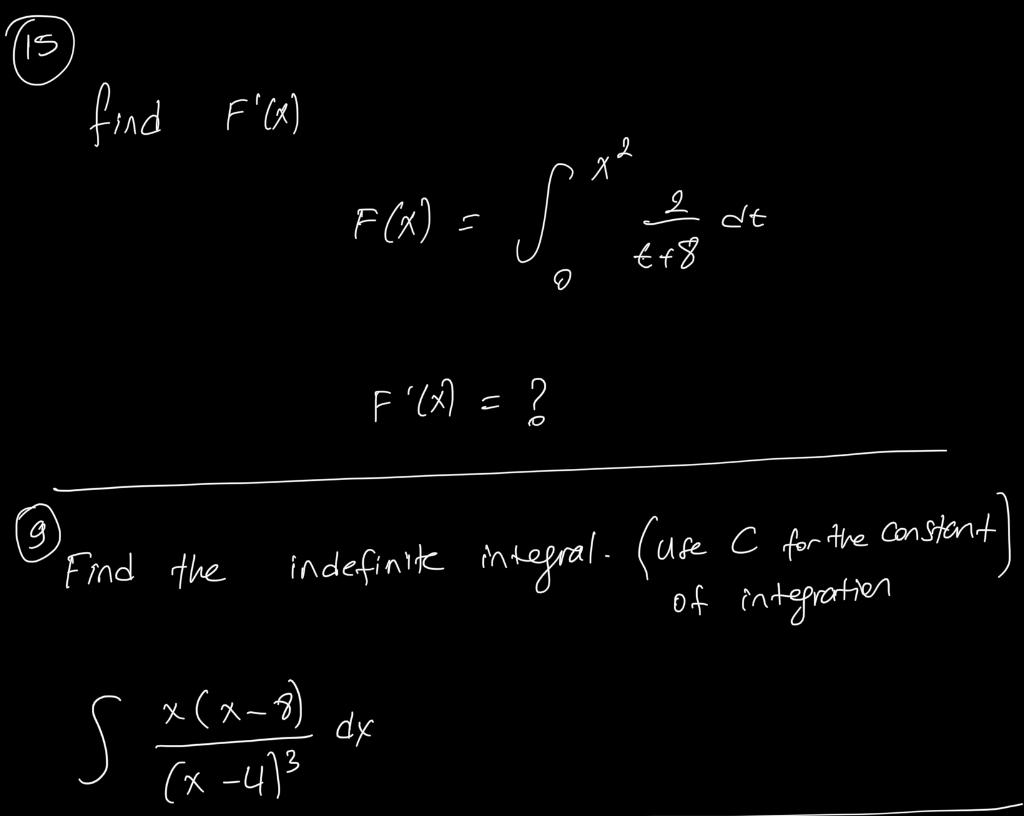 15
find F'(x)
F(x) = ∫₀^{x²} 2/(t+8) dt
F'(x) = ?
9
Find the indefinite integral. (Use C for the constant
of integration)
∫ x(x-8)/(x-4)³ dx